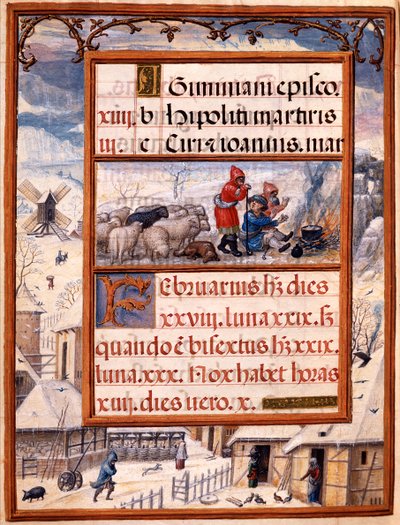 Giminiani episco.
xiiij. b hipoliti martiris
iij. c Ciri ⁊ ioannis. mar
FEbruarius hʒ dies
xxviij. luna xxix. sʒ
quando ē bisextus hʒ xxix.
luna. xxx. Nox habet horas
xiiij. dies uero. x.